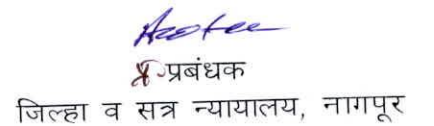 प्रबंधक
जिल्हा व सत्र न्यायालय, नागपूर